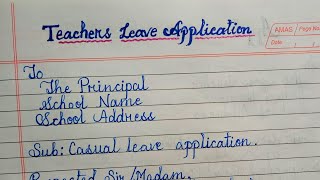 Teachers Leave Application
AMAS
Page No
Date
To
The Principal
School Name
School Address
Sub: Casual leave application.
Respected Sir/Madam,